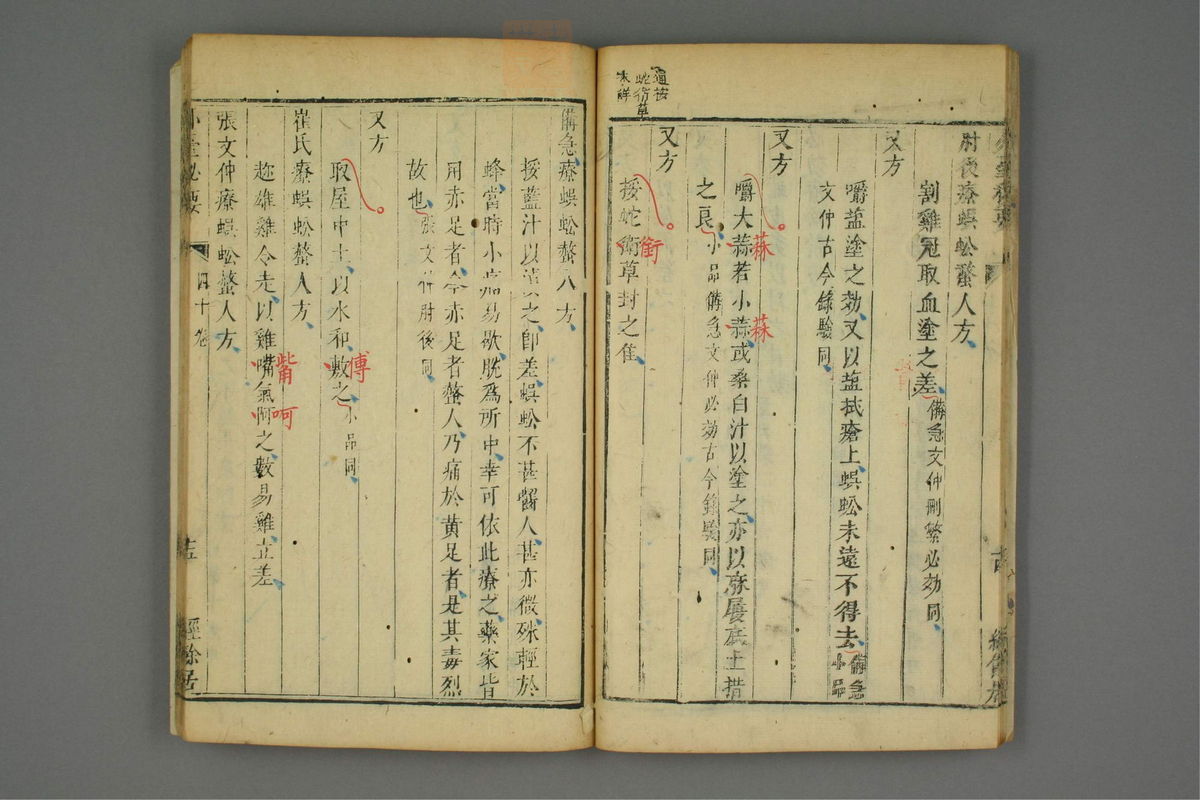 肘後療蜈蚣螫人方
割雞冠取血塗之差備急文仲刪繁必効同
又方
嚼鹽塗之効又以鹽拭瘡上蜈蚣未遠不得去備急小品
文仲古今錄驗同
又方
嚼大蒜若小蒜或桑白汁以塗之亦以麻屨底土揩
蒜
蒜
之良小品備急文仲必効古今錄驗同
又方
挼蛇銜草封之佳
銜
按
蛇銜草
未詳
備急療蜈蚣螫人方
挼藍汁以漬之即差蜈蚣不甚齧人甚亦微殊輕於
蜂當時小痛易歇脫為所中幸可依此療之藥家皆
用赤足者今赤足者螫人乃痛於黃足者是其毒烈
故也張文仲肘後同
又方
取屋中土以水和敷之小品同
傅
崔氏療蜈蚣螫人方
趂雄雞令走以雞嘴氣呵之數易雞立差
觜
呵
張文仲療蜈蚣螫人方
外臺秘要
四十卷
經餘居